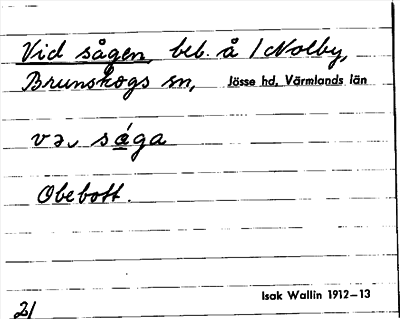 Vid sågen, beb. å 1 Nolby,
Brunskogs sn, Jösse hd, Värmlands län
və, såga
Obebott.
Isak Wallin 1912–13
21